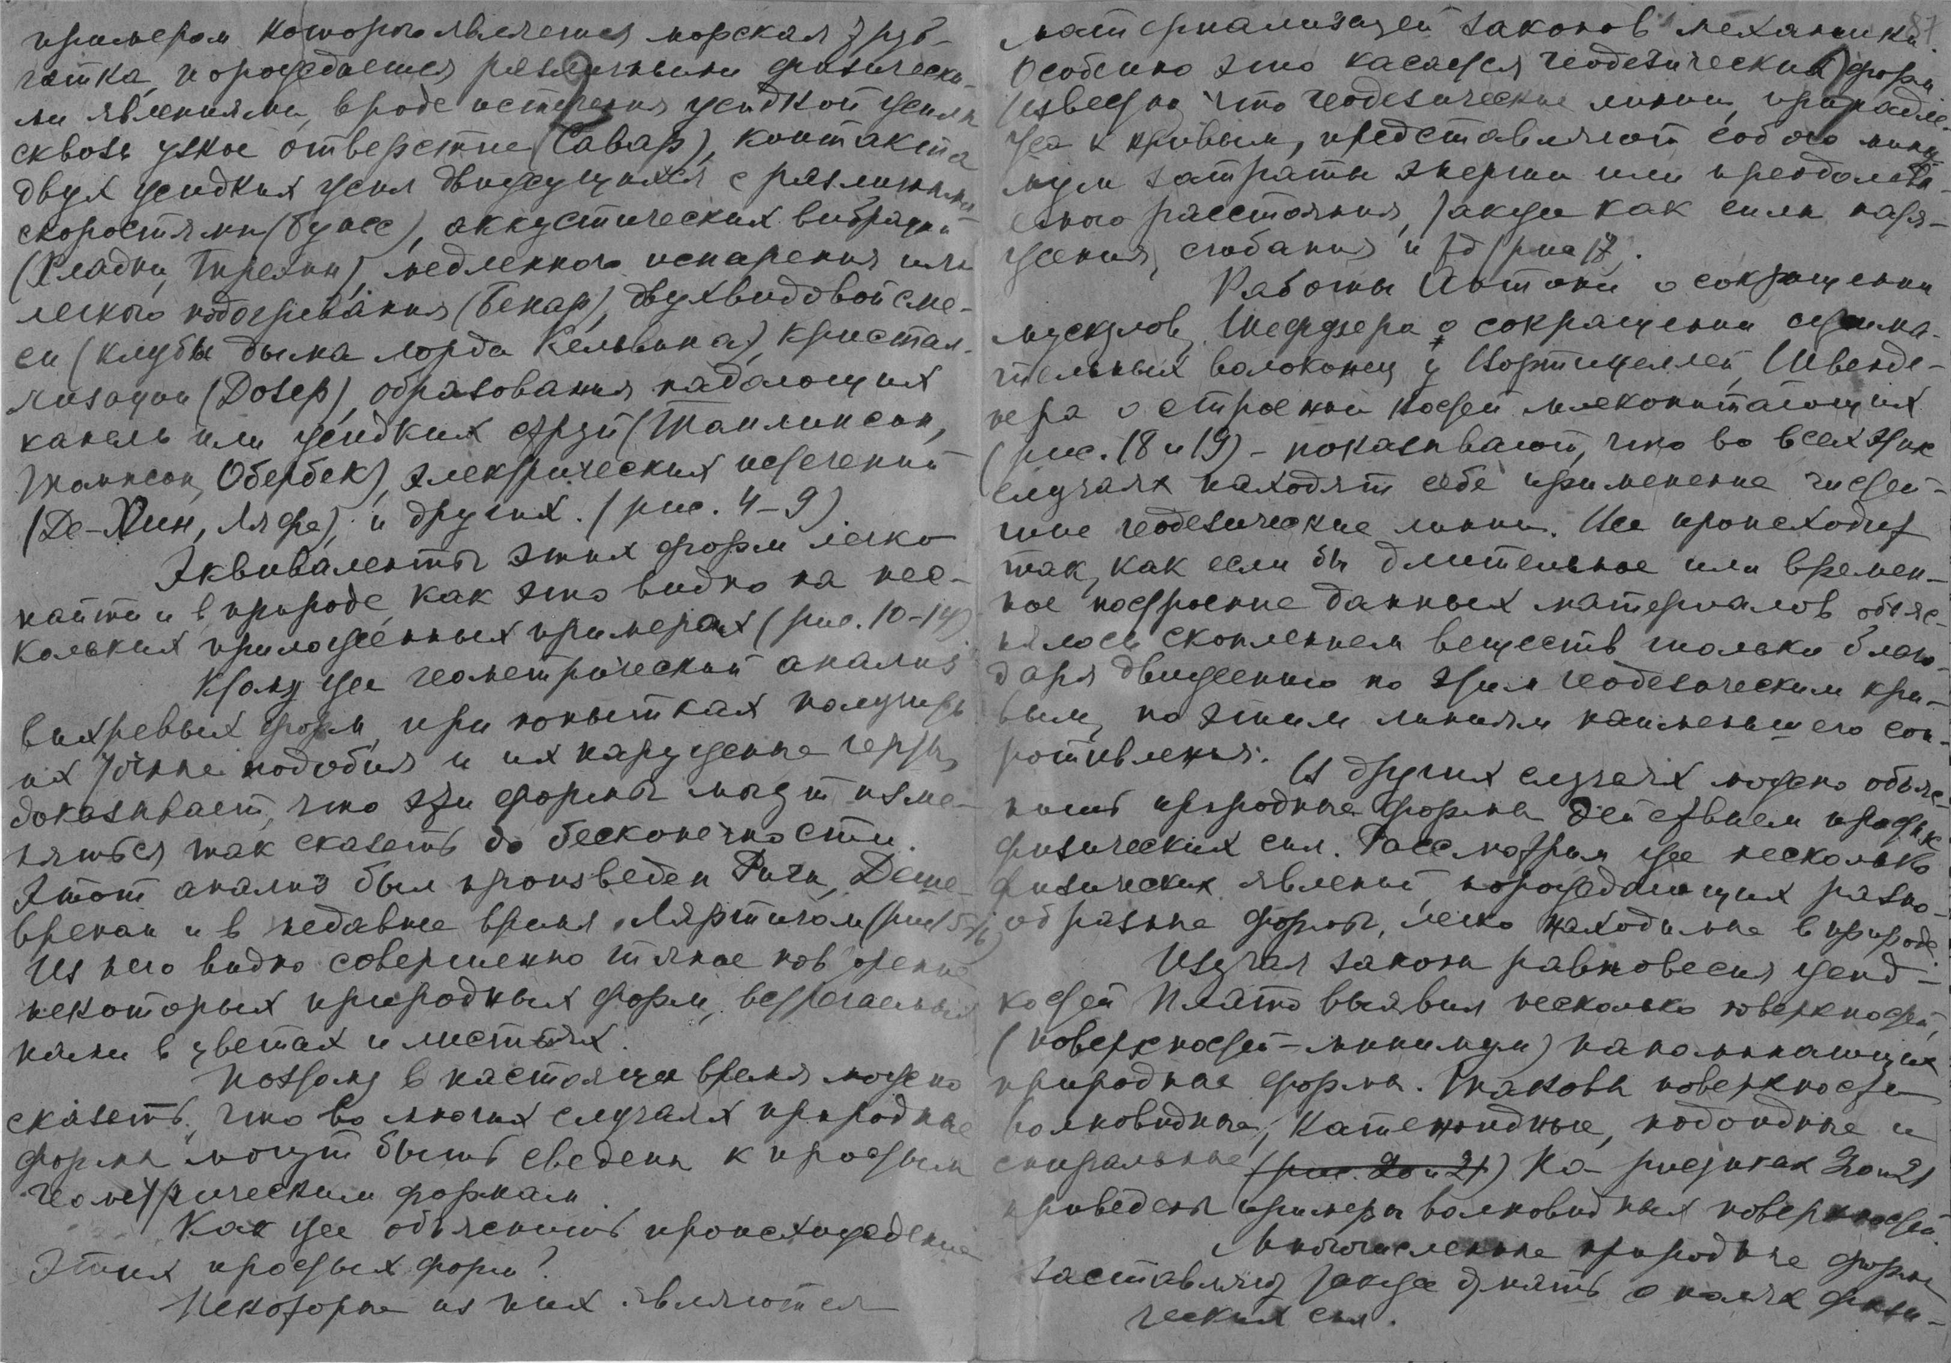 примером которого является морская звез-
чатка, порождается различными физически-
ми явлениями, вроде истечения жидкой жилы
сквозь узкое отверстие (Савар), контакта
двух жидких жил движущихся с различными
скоростями (Бусс), аккустических вибраций
(Хладни, Тирелин), медленного испарения или
легкого подогревания (Бенар), двухвидовой сме-
си (клубы дыма лорда Кельвина), кристал-
лизации (Дозер), образования падающих
капель или жидких струй (Томлинсон,
Томпсон, Обербек), электрических истечений
(Де-Хин, Ляфе), и других. (рис. 4-9)
Эквиваленты этих форм легко
найти и в природе, как это видно на нес-
кольких приложенных примерах (рис. 10-14)
К тому же геометрический анализ
вихревых форм, при попытках получить
их точные подобия и их наружные черты,
доказывает, что эти формы могут изме-
няться так сказать до бесконечности.
Этот анализ был произведен Риги, Деше-
вренам и в недавнее время Ляртигом (рис 15, 16)
Из него видно совершенно точное повторение
некоторых природных форм, встречаемых
нами в цветах и листьях.
Поэтому в настоящее время можно
сказать, что во многих случаях природные
формы могут быть сведены к простым
геометрическим формам.
Как же объяснить происхождение
этих простых форм?
Некоторые из них являются
материализацией законов механики.
Особенно это касается геодезических форм
Известно, что геодезические линии, принадле-
жа к кривым, представляют собою мини-
мум затраты энергии или преодолен-
ного расстояния, также как силы напря-
жения, сгибания и тд (рис 17).
Работы Антони о сокращении
мускулов, Шеффера о сокращении сжима-
тельных волоконец у Вортицеллей, Швенде-
нера о строении костей млекопитающих
(рис. 18 и 19) - показывают, что во всех этих
случаях находят себе применение чистей-
шие геодезические линии. Все происходит
так, как если бы длительное или времен-
ное построение данных материалов объяс-
нялось скоплением веществ только благо-
даря движению по этим геодезическим кри-
вым, по этим линиям наименьшего соп-
ротивления.
В других случаях можно объяс-
нить природные формы действием простых
физических сил. Рассмотрим же несколько
физических явлений, порождающих разно-
образные формы, легко находимые в природе.
Изучая законы равновесия жид-
костей Плато выявил несколько поверхностей,
(поверхностей-минимум) напоминающих
природные формы. Таковы поверхности
волновидные, катеноидные, нодоидные и
спиральные (рис. 20 и 21) На рисунках 20 и 21
приведены примеры волновидных поверхностей.
Многочисленные природные формы
заставляют также думать о полях физи-
ческих сил.